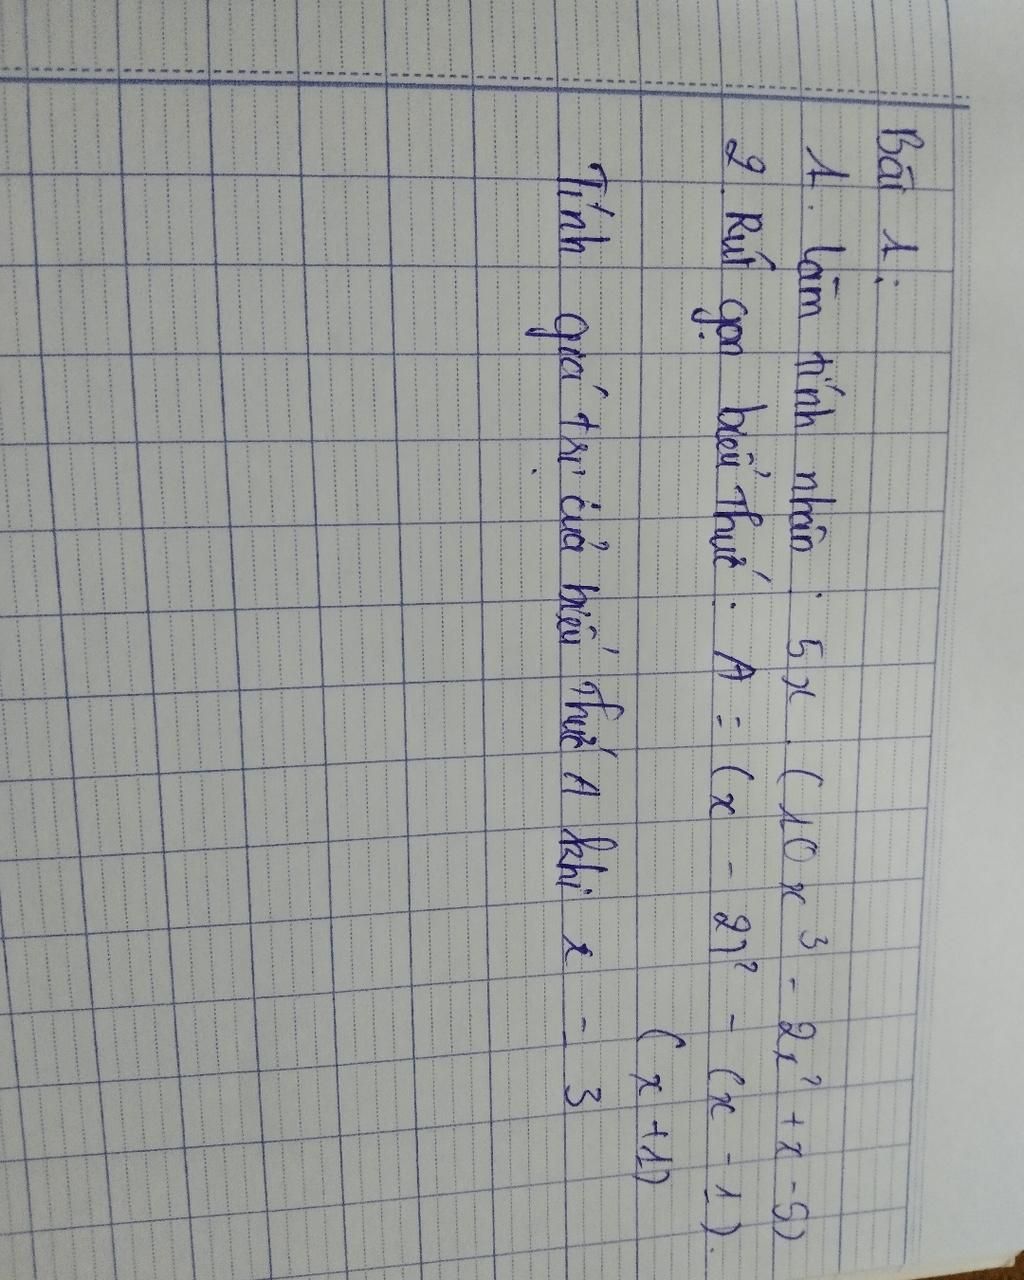 Bài 1:
1. làm tính nhân : 5x . (10x³ - 2x² + x - 9)
2. Rút gọn biểu thức : A = (x - 2)² - (x - 1).
(x + 1)
Tính giá trị của biểu thức A khi x = 3